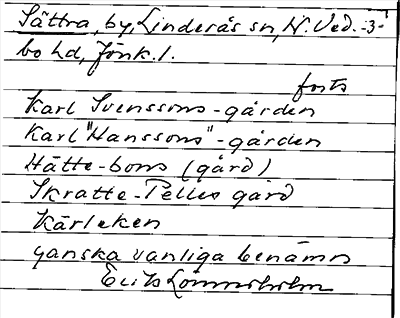 Sättra, by, Linderås sn, N. Ved- -3-
bo hd, Jönk. l.
forts
Karl Svenssons-gården
Karl "Hanssons"-gården
Hätte-bons (gård)
Skratte-Pelles gård
Kärleken
ganska vanliga benämn